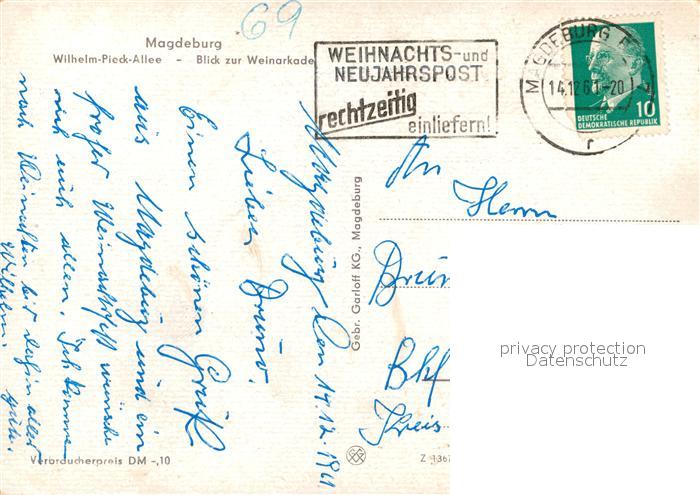 69
Magdeburg
Wilhelm-Pieck-Allee – Blick zur Weinarkade
WEIHNACHTS-und
NEUJAHRSPOST
rechtzeitig
einliefern!
MAGDEBURG
14.12.61-20
r
10
DEUTSCHE
DEMOKRATISCHE REPUBLIK
Magdeburg den 14.12.1961
Lieber Bruno,
Einen schönen Gruß
aus Magdeburg und ein
frohes Weihnachtsfest wünsche
ich euch allen. Ich komme
nach Weinachten bis dahin alles
gute.
Wilhelm.
Gebr. Garloff KG., Magdeburg
An
Herrn
Brun
Bhf
Kreis
Verbraucherpreis DM -,10
Z 1367
privacy protection
Datenschutz